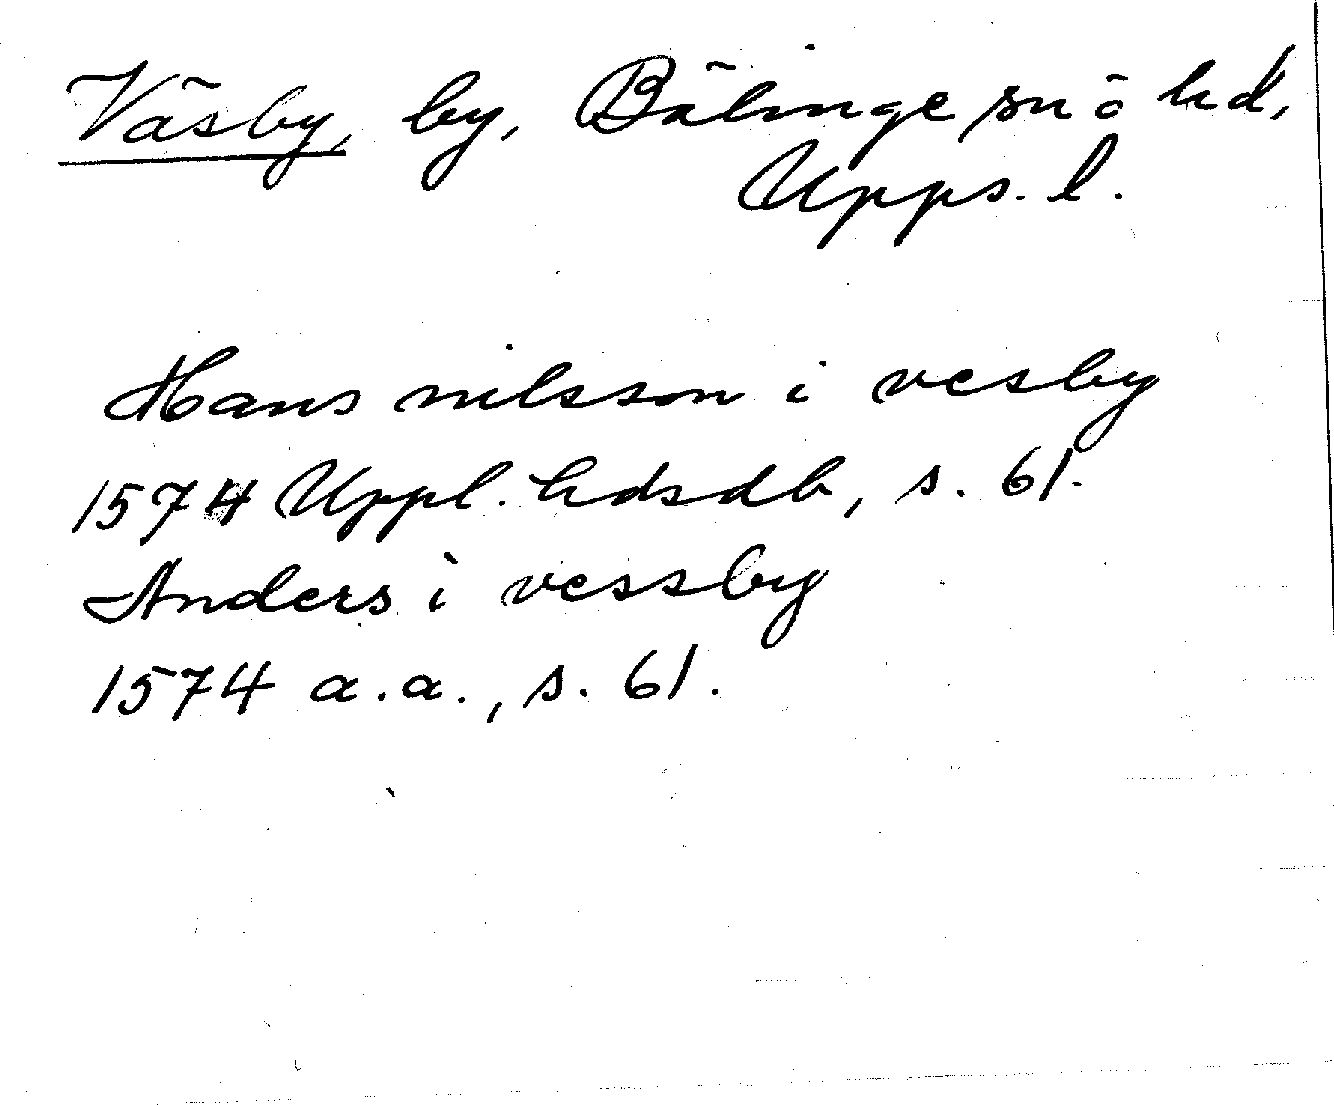 Väsby, by, Bälinge sn ö hd,
Upps. l.
Hans nilsson i vesby
1574 Uppl. hdsdb, s. 61.
Anders i vessby
1574 a.a., s. 61.